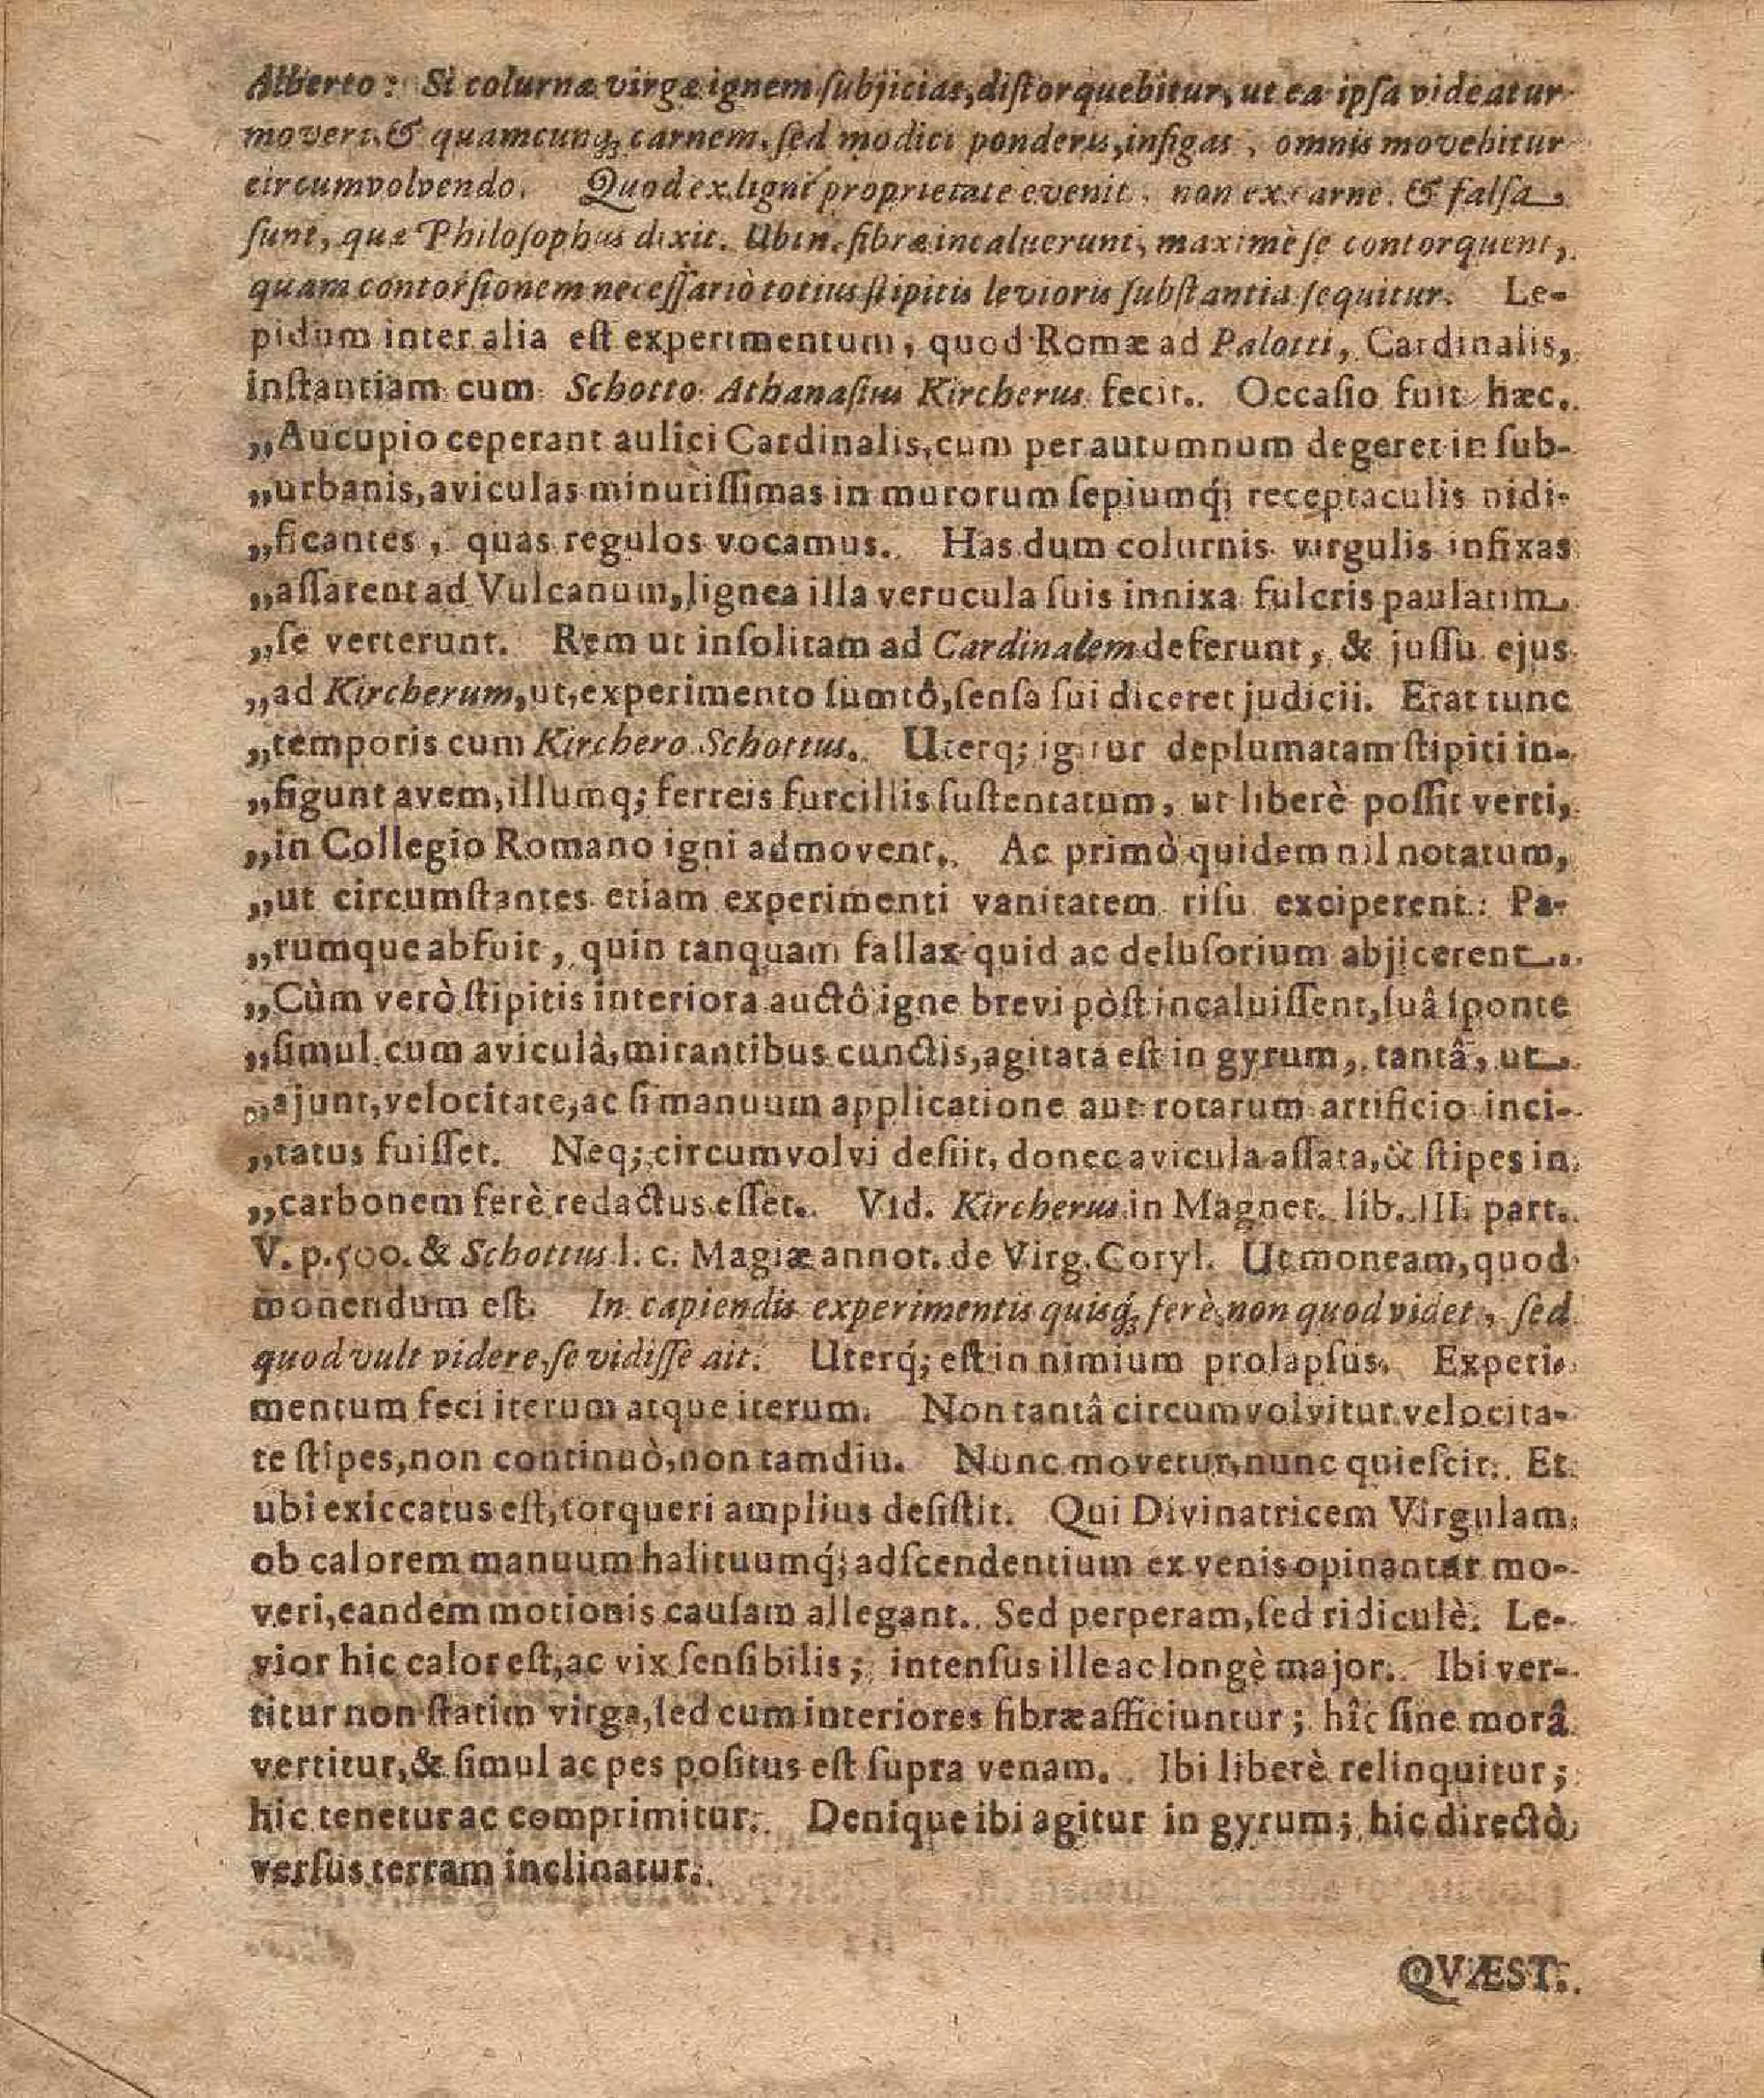 Alberto: Si colurnæ virgæ ignem ſubjicias, diſtorquebitur, ut ea ipſa videatur
moveri, & quamcunq; carnem, ſed modici ponderis, infigas, omnis movebitur
circumvolvendo. Quod ex ligni proprietate evenit, non ex carne. & falſa
ſunt, quæ Philoſophus dixit. Ubi n. fibræ incaluerunt, maximè ſe contorquent,
quam contorſionem neceſſariò totius ſtipitis levioris ſubſtantia ſequitur. Le-
pidum inter alia eſt experimentum, quod Romæ ad Palotti, Cardinalis,
inſtantiam cum Schotto Athanaſius Kircherus fecit. Occaſio fuit hæc.
„Aucupio ceperant aulici Cardinalis, cum per autumnum degeret in ſub-
„urbanis, aviculas minutiſſimas in murorum ſepiumq́; receptaculis nidi-
„ficantes, quas regulos vocamus. Has dum colurnis virgulis infixas
„aſſarent ad Vulcanum, lignea illa verucula ſuis innixa fulcris paulatim
„ſe verterunt. Rem ut inſolitam ad Cardinalem deferunt, & juſſu ejus
„ad Kircherum, ut, experimento ſumtô, ſenſa ſui diceret judicii. Erat tunc
„temporis cum Kirchero Schottus. Uterq; igitur deplumatam ſtipiti in-
„figunt avem, illumq; ferreis furcillis ſuſtentatum, ut liberè poſſit verti,
„in Collegio Romano igni admovent. Ac primò quidem nil notatum,
„ut circumſtantes etiam experimenti vanitatem riſu exciperent: Pa-
„rumque abfuit, quin tanquam fallax quid ac deluſorium abjicerent.
„Cùm verò ſtipitis interiora auctô igne brevi pòſt incaluiſſent, ſuâ ſponte
„ſimul cum aviculâ, mirantibus cunctis, agitata eſt in gyrum, tantâ, ut
„ajunt, velocitate, ac ſi manuum applicatione aut rotarum artificio inci-
„tatus fuiſſet. Neq; circumvolvi deſiit, donec avicula aſſata, & ſtipes in
„carbonem ferè redactus eſſet. Vid. Kircherus in Magnet. lib. III. part.
V. p. 500. & Schottus l. c. Magiæ annot. de Virg. Coryl. Ut moneam, quod
monendum eſt. In capiendis experimentis quisq́; ferè, non quod videt, ſed
quod vult videre, ſe vidiſſe ait. Uterq́; eſt in nimium prolapſus. Experi-
mentum feci iterum atque iterum. Non tantâ circumvolvitur velocita-
te ſtipes, non continuò, non tamdiu. Nunc movetur, nunc quieſcit. Et
ubi exiccatus eſt, torqueri amplius deſiſtit. Qui Divinatricem Virgulam
ob calorem manuum halituumq́; adſcendentium ex venis opinantur mo-
veri, eandem motionis cauſam allegant. Sed perperam, ſed ridiculè. Le-
vior hic calor eſt, ac vix ſenſibilis; intenſus ille ac longè major. Ibi ver-
titur non ſtatim virga, ſed cum interiores fibræ afficiuntur; hîc ſine morâ
vertitur, & ſimul ac pes poſitus eſt ſupra venam. Ibi liberè relinquitur;
hic tenetur ac comprimitur. Denique ibi agitur in gyrum; hic directò
verſus terram inclinatur.
QVÆST.